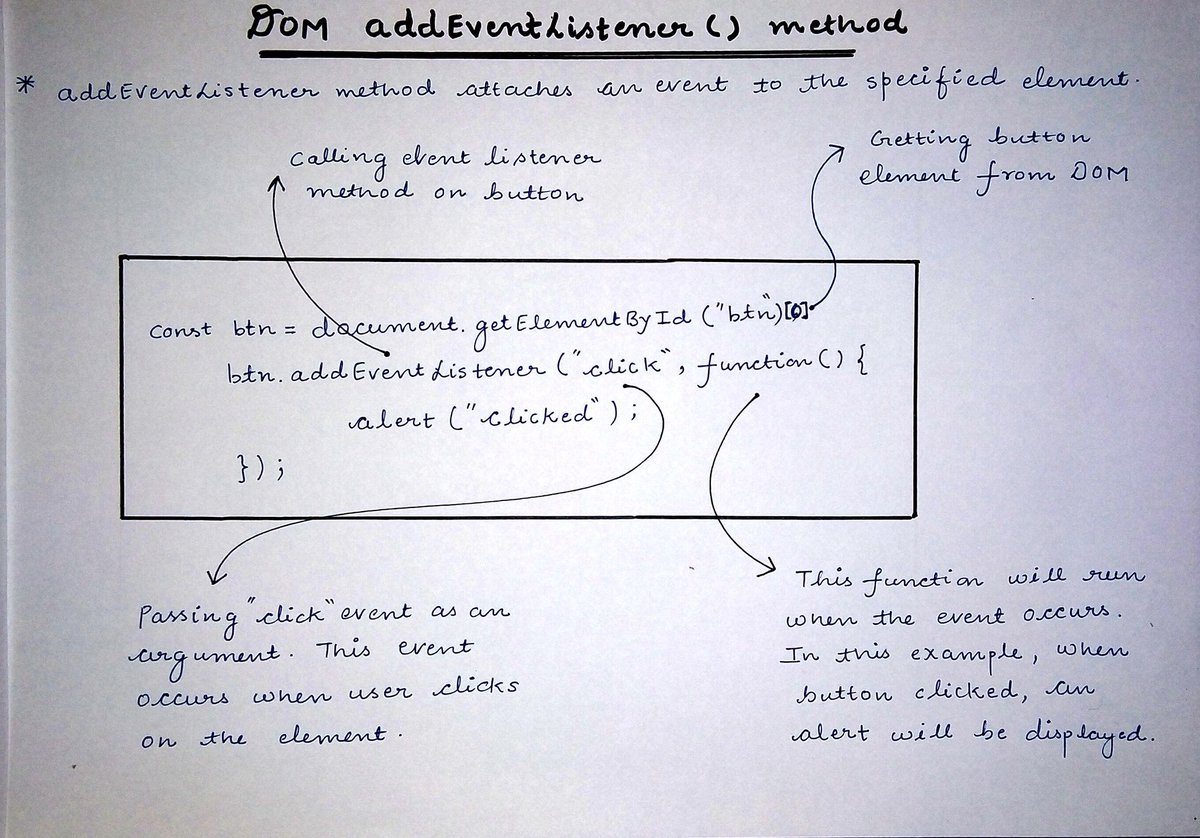 DOM addEventListener() method
* addEventListener method attaches an event to the specified element.
Calling event listener
method on button
Getting button
element from DOM
const btn = document.getElementById("btn")[0]
btn.addEventListener("click", function() {
alert("clicked");
});
Passing "click" event as an
argument. This event
occurs when user clicks
on the element.
This function will run
when the event occurs.
In this example, when
button clicked, an
alert will be displayed.